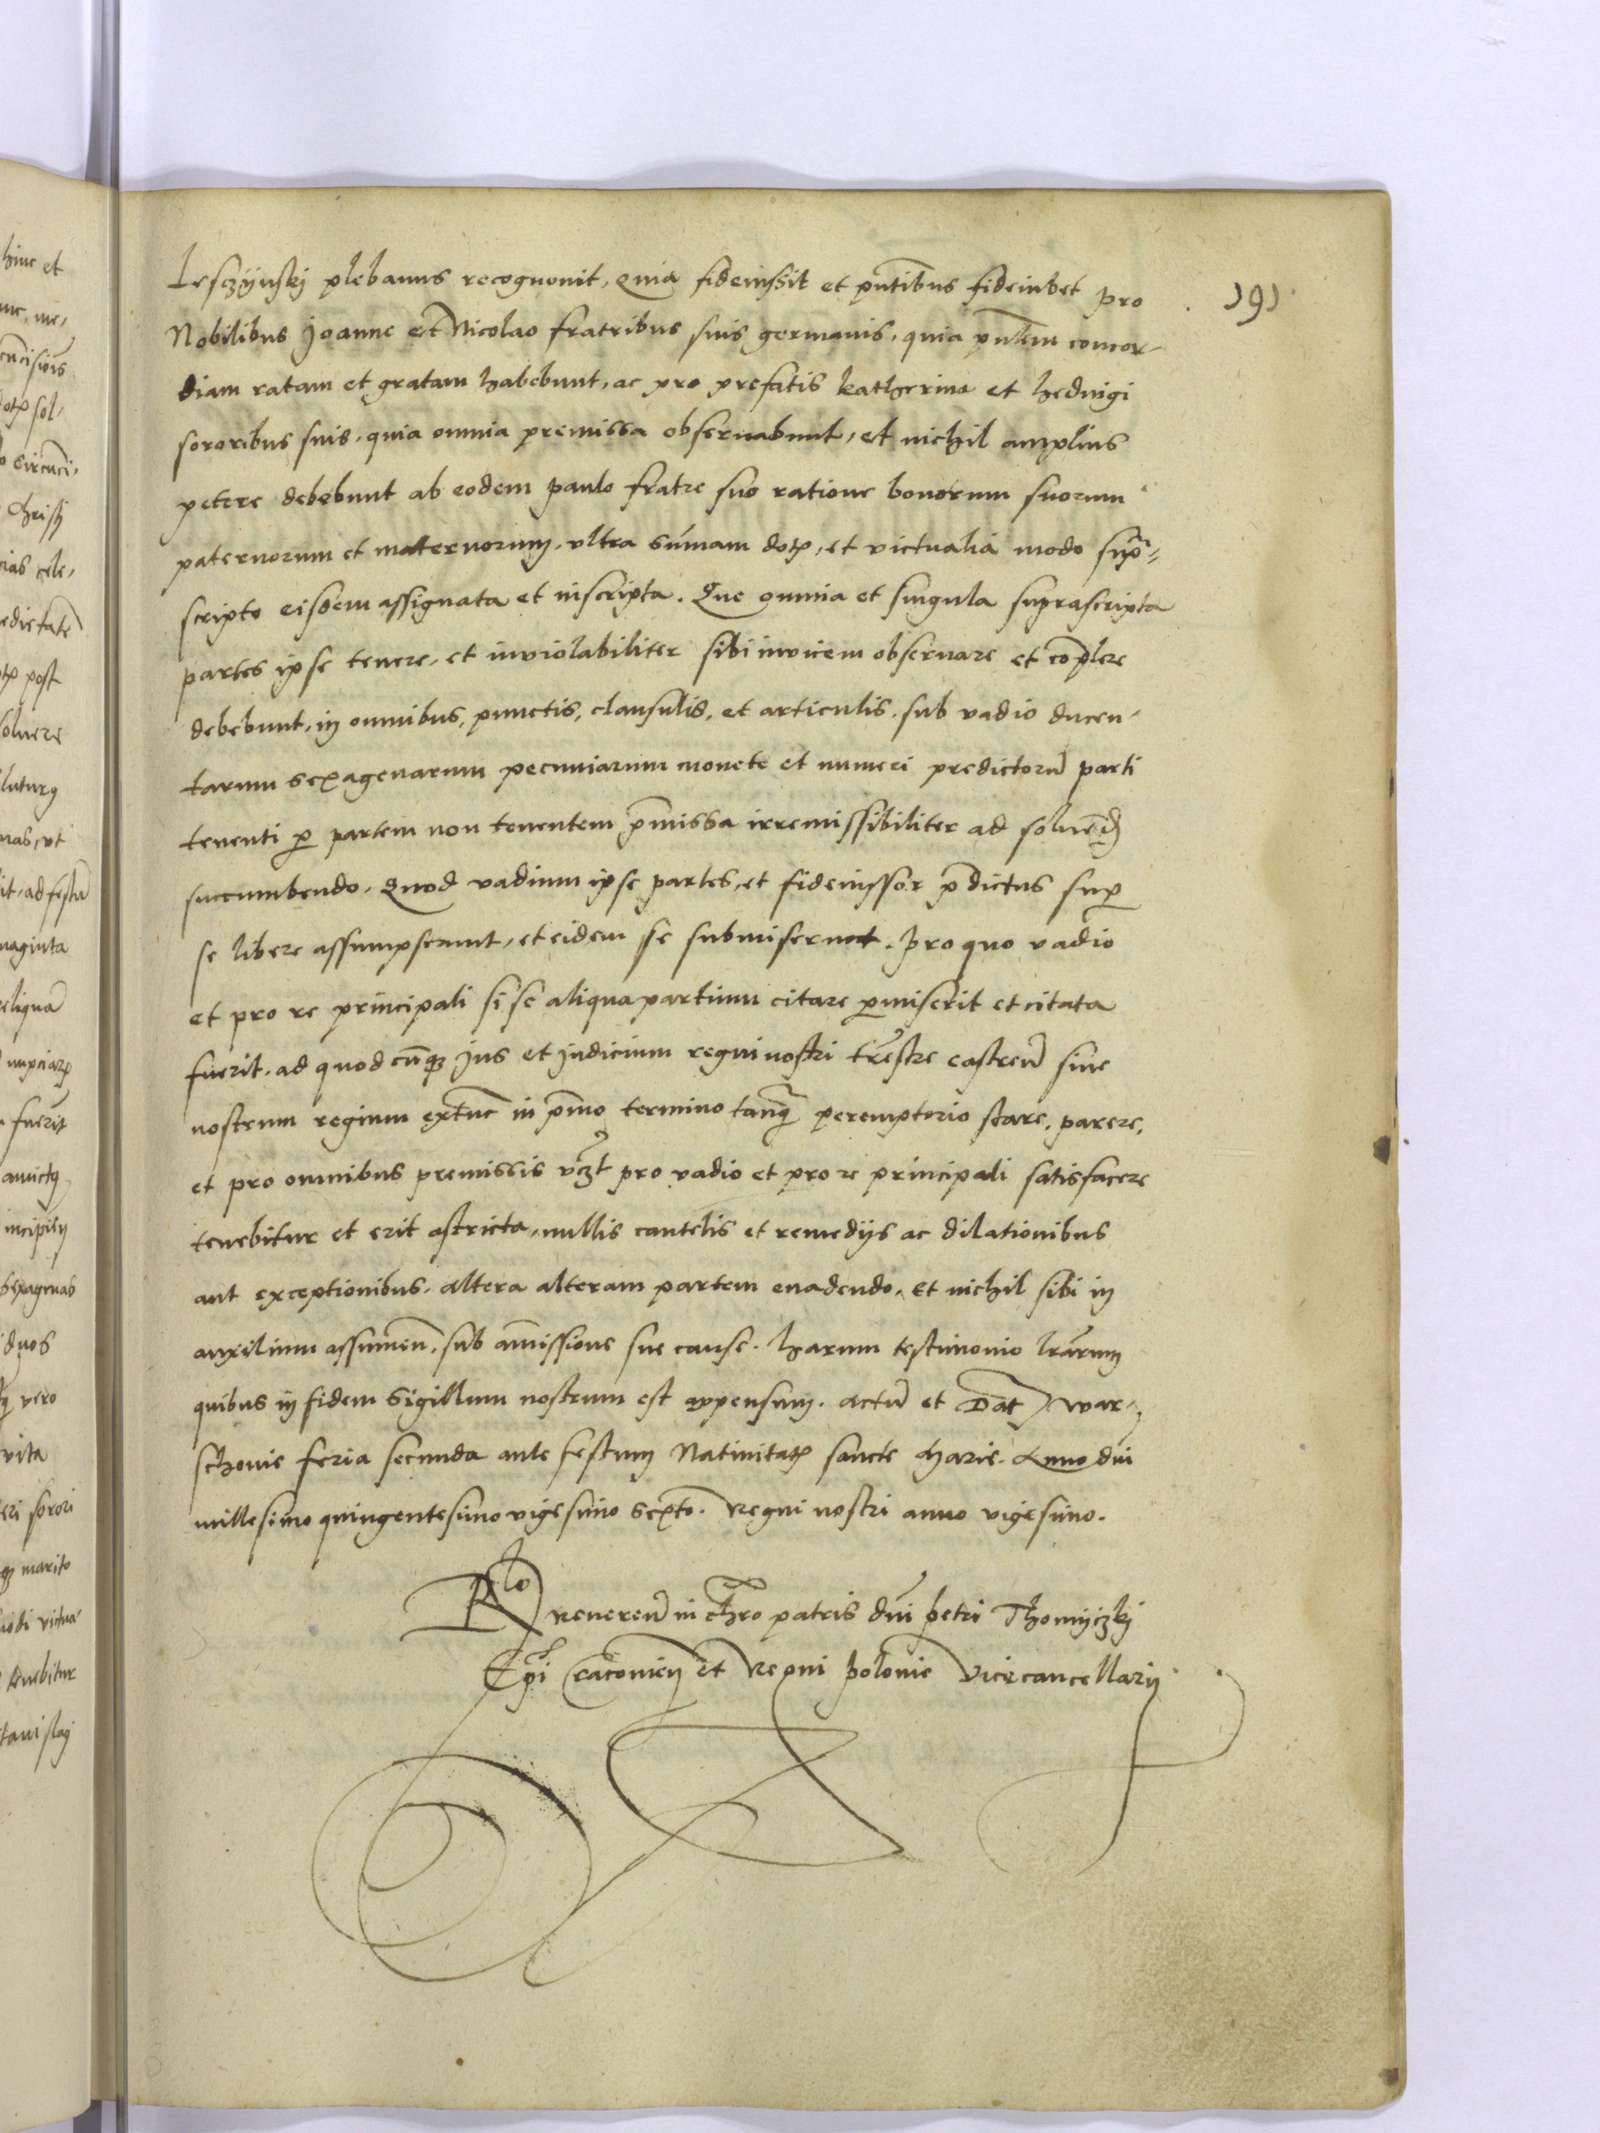 Lesczÿnskj plebanus recognouit, Quia fideiussit et pñtibus fideiubet pro
191
Nobilibus Joanne et Nicolao fratribus suis germanis, quia pñtem concor-
diam ratam et gratam habebunt, ac pro prefatis Katherina et Heduigi
sororibus suis, quia omnia premissa obseruabunt, et nichil amplius
petere debebunt ab eodem Paulo fratre suo ratione bonorum suorum
paternorum et maternorum, vltra sum̃am dotꝭ, et victualia modo sup̃-
scripto eisdem assignata et inscripta. Que omnia et singula suprascripta
partes ipse tenere, et inuiolabiliter sibi inuicem obseruare et cõplere
debebunt, in omnibus, punctis, clausulis, et articulis, sub vadio ducen-
tarum sexagenarum pecuniarum monete et numeri predictorũ parti
tenenti ꝑ partem non tenentem p̃missa irremissibiliter ad soluẽd
succumbendo. Quod vadium ipse partes, et fideiussor p̃dictus suꝑ
se libere assumpserunt, et eidem se submiserunt. Pro quo vadio
et pro re principali si se aliqua partium citare ꝑmiserit et citata
fuerit, ad quodcũqꝫ jus et judicium regni nostri trẽstre castreñ siue
nostrum regium extũc in p̃mo termino tanq̃ peremptorio stare, parere,
et pro omnibus premissis vꝫt pro vadio et pro re principali satisfacere
tenebitur et erit astricta, nullis cautelis et remedijs ac dilationibus
aut exceptionibus, altera alteram partem euadendo, Et nichil sibi in
auxilium assumeñ, sub am̃issione sue cause. Harum testimonio lr̃arum
quibus in fidem Sigillum nostrum est appensum. Actũ et Dat War-
schouie feria secunda ante festum Natiuitatꝭ sancte Marie. Anno dñi
millesimo quingentesimo vigesimo sexto. Regni nostri anno vigesimo.
Rlo Reuereñ in Chr̃o patris dñi Petri Thomÿczkj
Ep̃i Cracouieñ et Regni Polonie Vicecancellarij